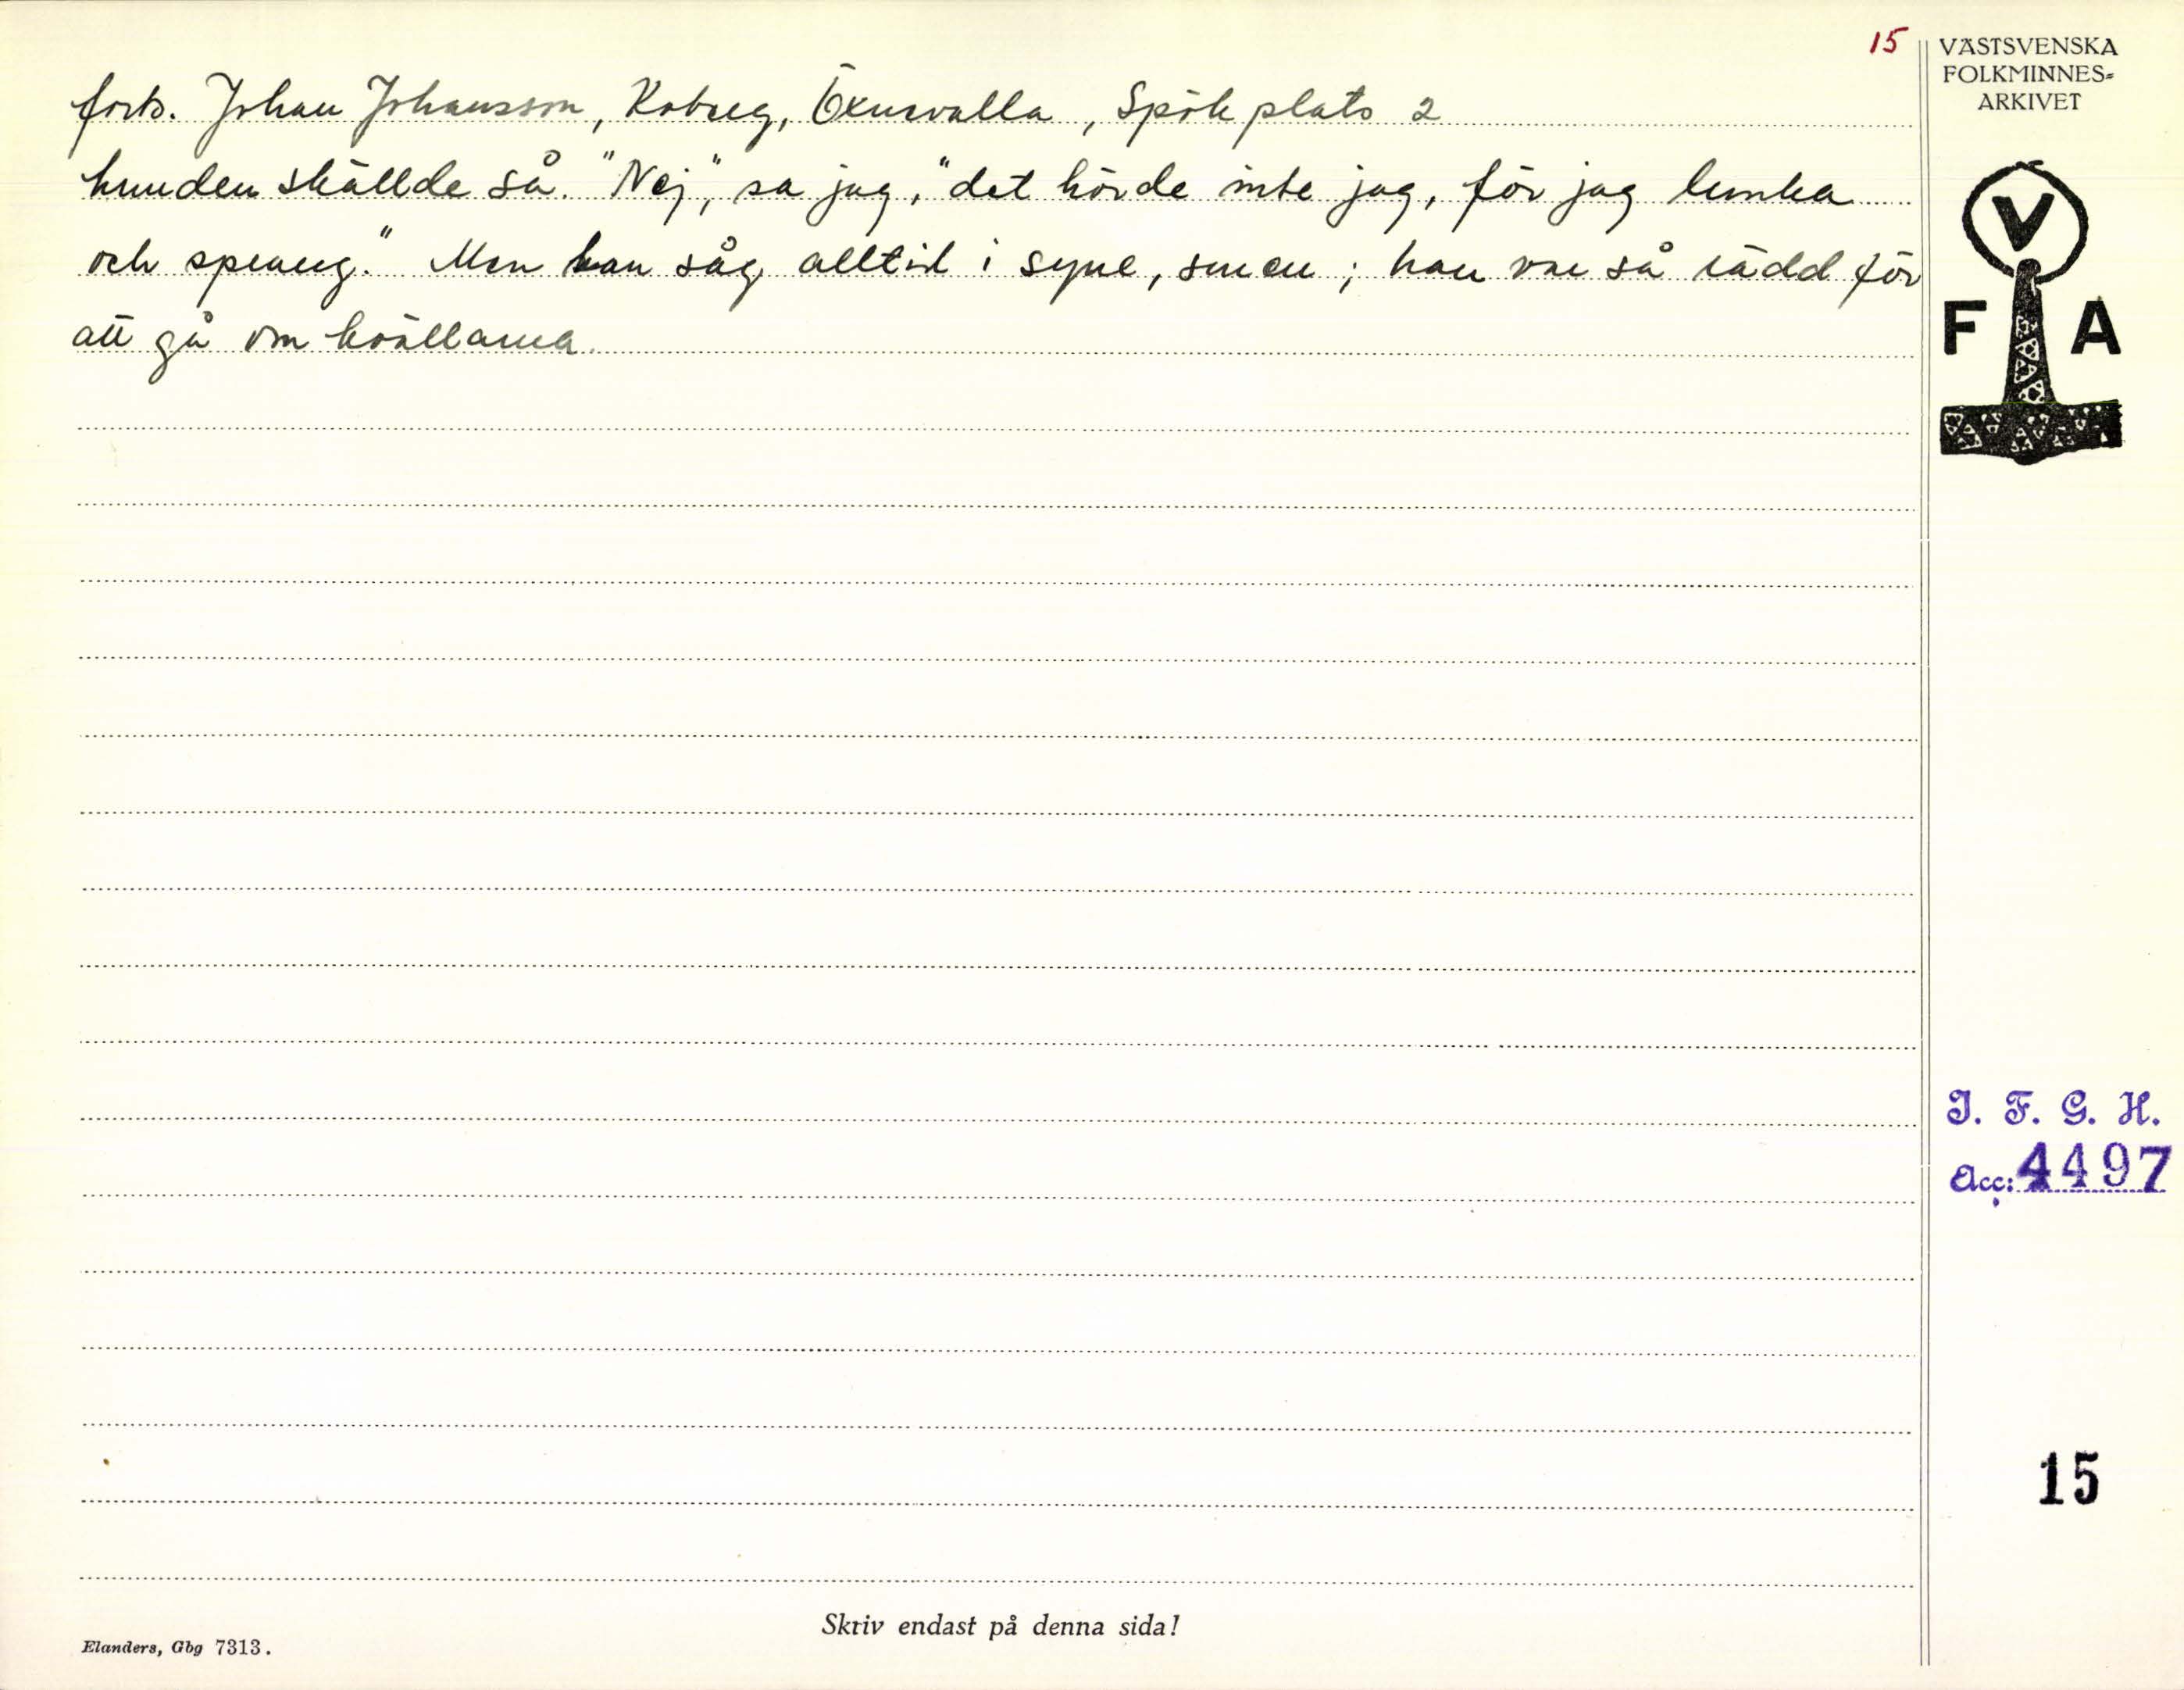 15
VÄSTSVENSKA
FOLKMINNES-
ARKIVET
forts. Johan Johansson, Koberg, Öxnevalla, Spökplats 2
hunden skällde så. "Nej", sa jag, "det hörde inte jag, för jag lunka
och sprang." Men han såg alltid i syne, smen; han var så rädd för
att gå om kvällarna.
V
F A
I. F. G. H.
Acc: 4497
15
Skriv endast på denna sida!
Elanders, Gbg 7313.